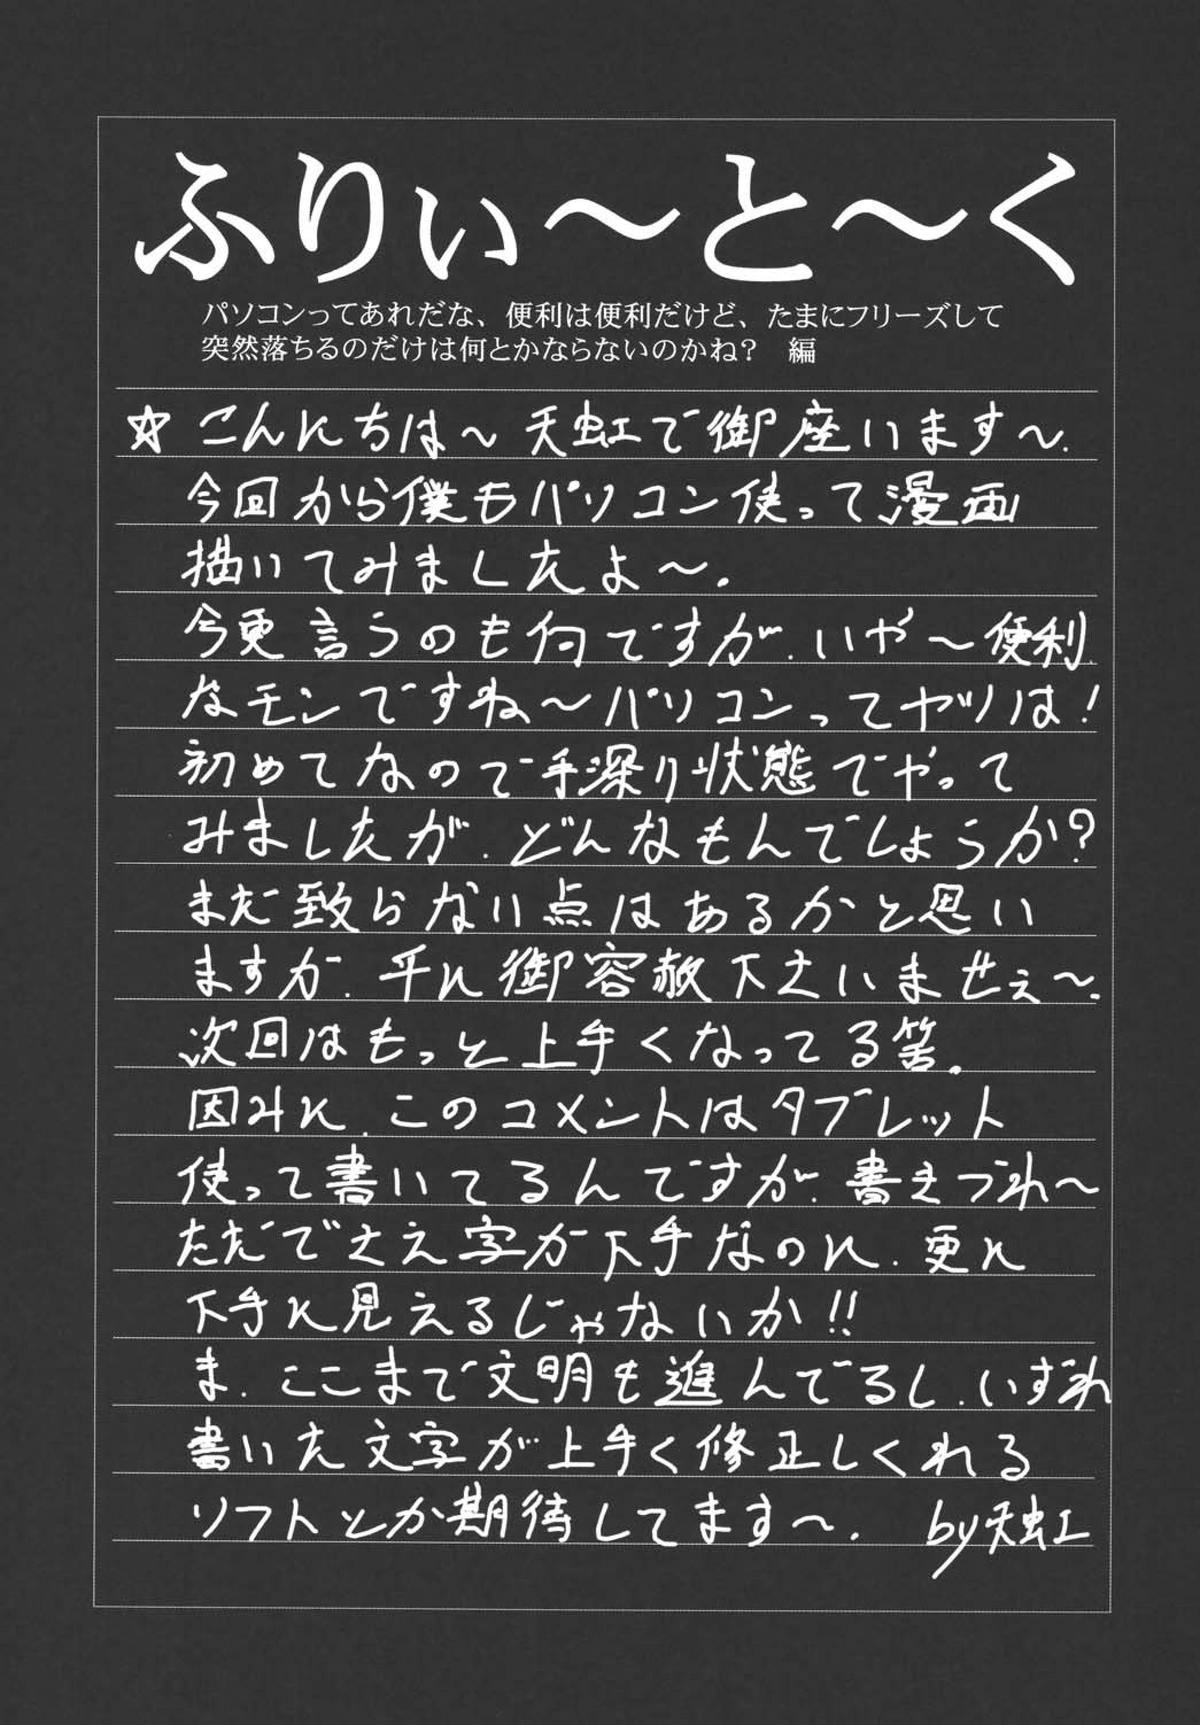 ふりぃ～と～く
パソコンってあれだな、便利は便利だけど、たまにフリーズして
突然落ちるのだけは何とかならないのかね？　編
☆こんにちは～天虹で御座います～.
今回から僕もパソコン使って漫画
描いてみましたよ～.
今更言うのも何ですが.いや～便利.
なモンですね～パソコンってヤツは!
初めてなので手深り状態でやって
みましたが.どんなもんでしょうか?
まだ致らない点はあるかと思い
ますが.平に御容赦下さいませぇ～.
次回はもっと上手くなってる筈。
因みに.このコメントはタブレット
使って書いてるんですが.書きづれ～
ただでさえ字が下手なのに.更に
下手に見えるじゃないか!!
ま.ここまで文明も進んでるし.いずれ
書いた文字が上手く修正しくれる
ソフトとか期待してます～.　by天虹